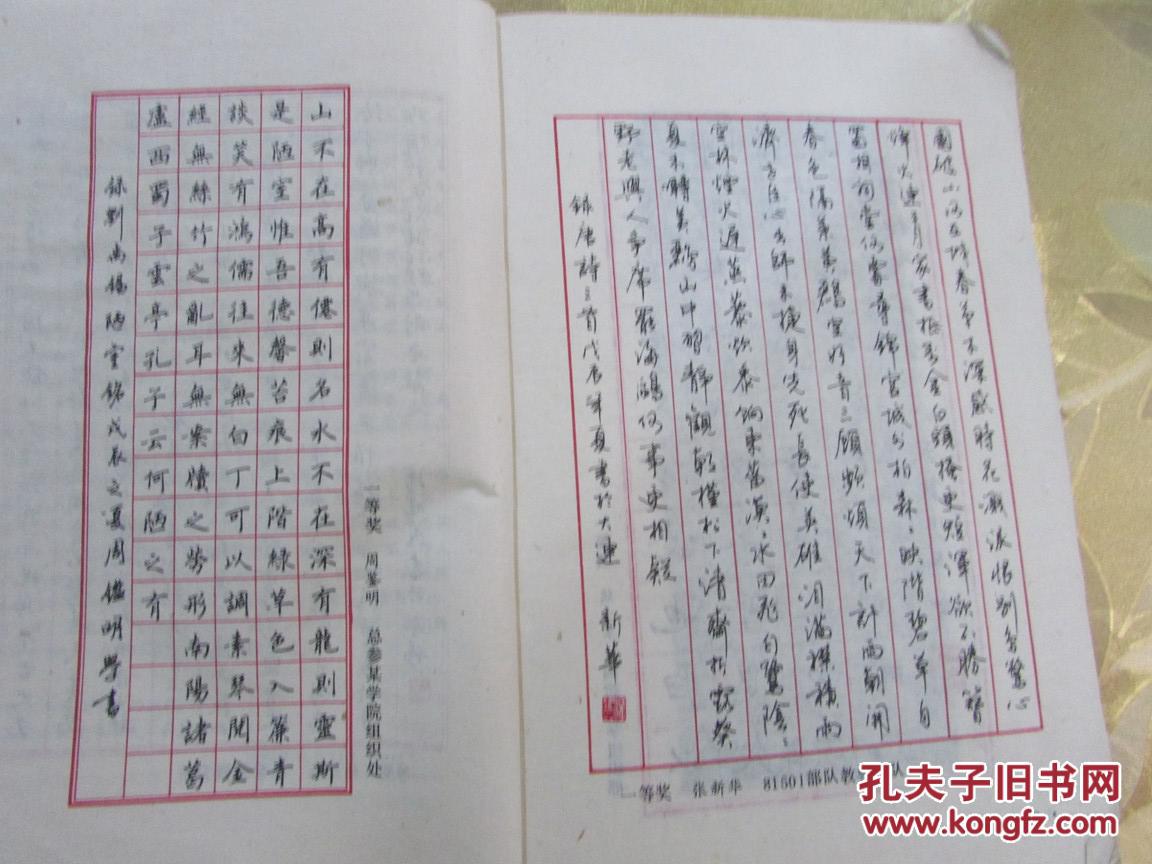 國破山河在城春草木深感時花濺淚恨別鳥驚心
烽火連三月家書抵萬金白頭搔更短渾欲不勝簪
蜀相祠堂何處尋錦官城外柏森〻映階碧草自
春色隔葉黃鸝空好音三顧頻煩天下計兩朝開
濟老臣心出師未捷身先死長使英雄淚滿襟積雨
空林煙火遲蒸藜炊黍餉東菑漠〻水田飛白鷺陰〻
夏木囀黃鸝山中習靜觀朝槿松下清齋折露葵
野老與人爭席罷海鷗何事更相疑
錄唐詩三首戊辰年夏書於大連 新華
一等奖 张新华 81501部队教
一等奖 周鉴明 总参某学院组织处
山不在高有僊則名水不在深有龍則靈斯
是陋室惟吾德馨苔痕上階綠草色入簾青
談笑有鴻儒往來無白丁可以調素琴閱金
經無絲竹之亂耳無案牘之勞形南陽諸葛
廬西蜀子雲亭孔子云何陋之有
錄劉禹錫陋室銘戊辰之夏周鑑明學書
孔夫子旧书网
www.kongfz.com